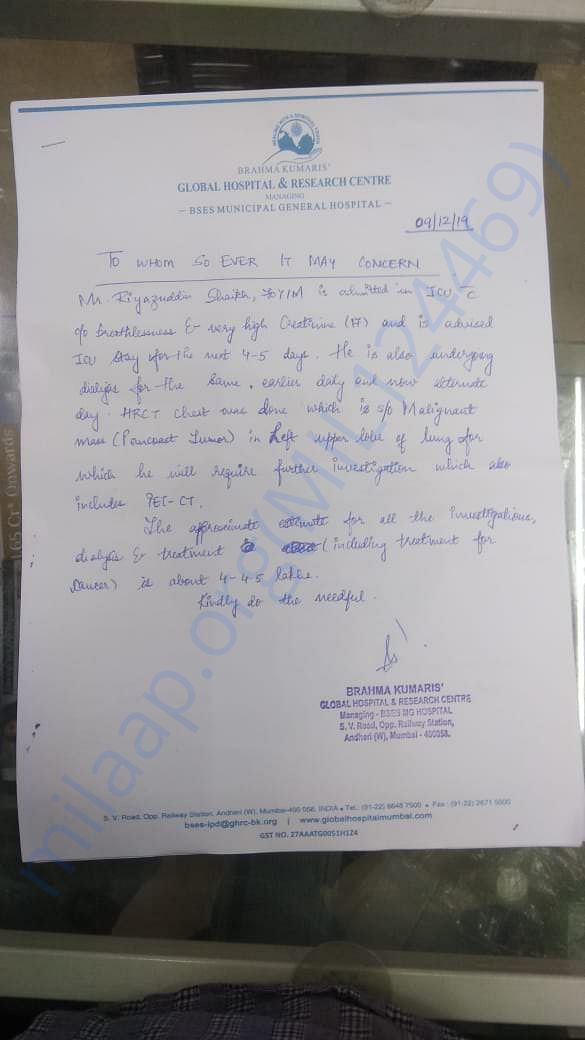 BRAHMA KUMARIS'
GLOBAL HOSPITAL & RESEARCH CENTRE
MANAGING
— BSES MUNICIPAL GENERAL HOSPITAL —
09/12/19
TO WHOM SO EVER IT MAY CONCERN
Mr. Riyazuddin Shaikh, Y/M is admitted in ICU c̄
c/o breathlessness & very high Creatinine (17) and is advised
ICU stay for the next 4-5 days. He is also undergoing
dialysis for the same, earlier daily and now alternate
day. HRCT chest was done which is s/o Malignant
mass (Pancoast Tumor) in Left upper lobe of lung for
which he will require further investigation which also
includes PET-CT.
The approximate estimate for all the investigations,
dialysis & treatment (including treatment for
Cancer) is about 4-4.5 lakhs.
Kindly do the needful.
BRAHMA KUMARIS'
GLOBAL HOSPITAL & RESEARCH CENTRE
Managing - BSES MG HOSPITAL
S. V. Road, Opp. Railway Station,
Andheri (W), Mumbai - 400058.
S. V. Road, Opp. Railway Station, Andheri (W), Mumbai-400 058, INDIA • Tel.: (91-22) 6648 7500 • Fax : (91-22) 2671 5000
bses-ipd@ghrc-bk.org | www.globalhospitalmumbai.com
GST NO. 27AAATG0051H1Z4
65 Cr* Onwards
milaap.org(MIL124469)